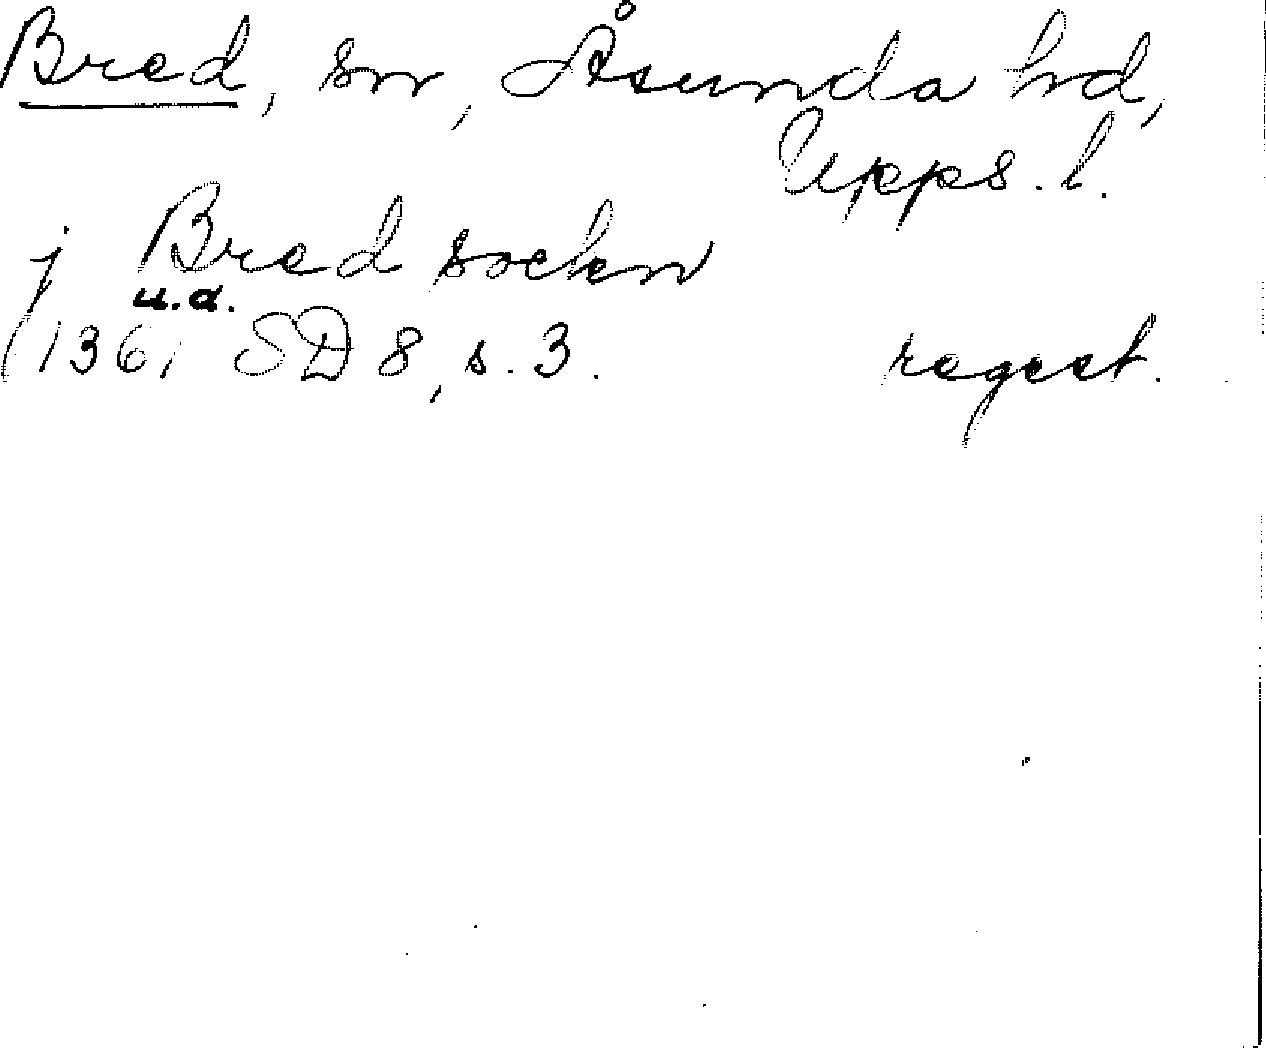 Bred, sn, Åsunda hd,
Upps. l.
j Bred sockn
u.d.
(1361 SD 8, s. 3. regest.